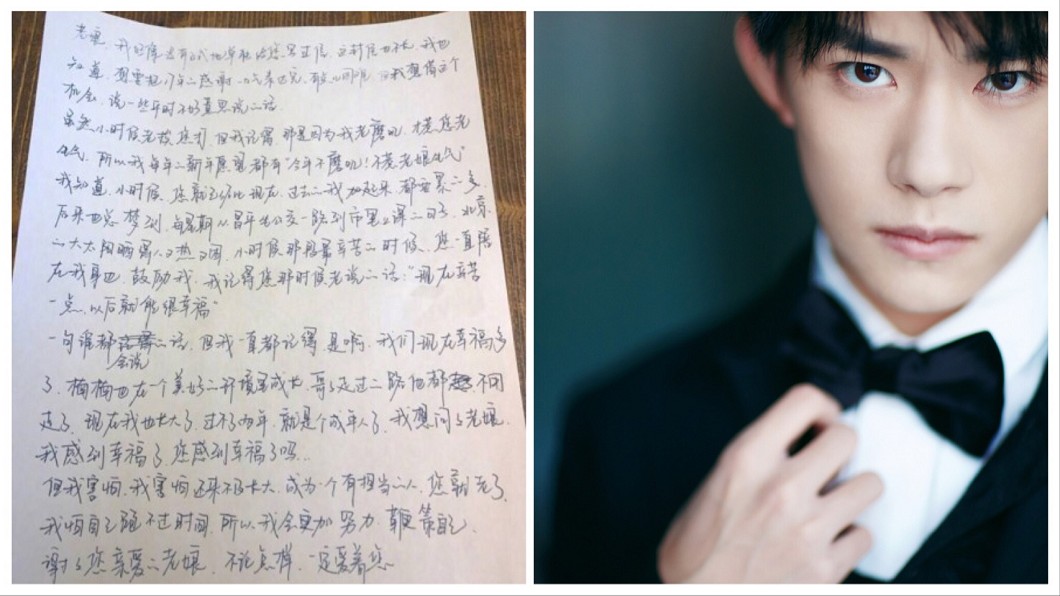 老娘，我好像没有正式地单独给您写过信，这封信也不长，我也
知道，想要把 年的感谢一次表达完，有点困难，但我想借这个
机会，说一些平时不好意思说的话.
虽然小时候老被您打，但我记得，那是因为我老磨叽，才惹您老
生气，所以我每年的新年愿望都有“今年不磨叽！不惹老娘生气”
我知道，小时候，您就已经比现在、过去的我加起来都要累的多.
后来也总梦到，每星期从昌平坐公交一路到市里上课的日子，北京
的大太阳晒得人又热又闷，小时候那段最辛苦的时候，您一直陪
在我身边，鼓励我，我记得您那时候老说的话：“现在辛苦
一点，以后就能很幸福”
一句谁都会说的话，但我一直都记得，是啊，我们现在幸福多
了，楠楠也在一个美好的环境里成长，哥哥走过的路他都不用
走了，现在我也长大了，过不了两年，就是个成年人了，我想问问老娘，
我感到幸福了，您感到幸福了吗...
但我害怕，我害怕还来不及长大，成为一个有担当的人，您就老了，
我怕自己跑不过时间，所以，我会更加努力，鞭策自己，
谢谢您亲爱的老娘，不论怎样，一定爱着您~